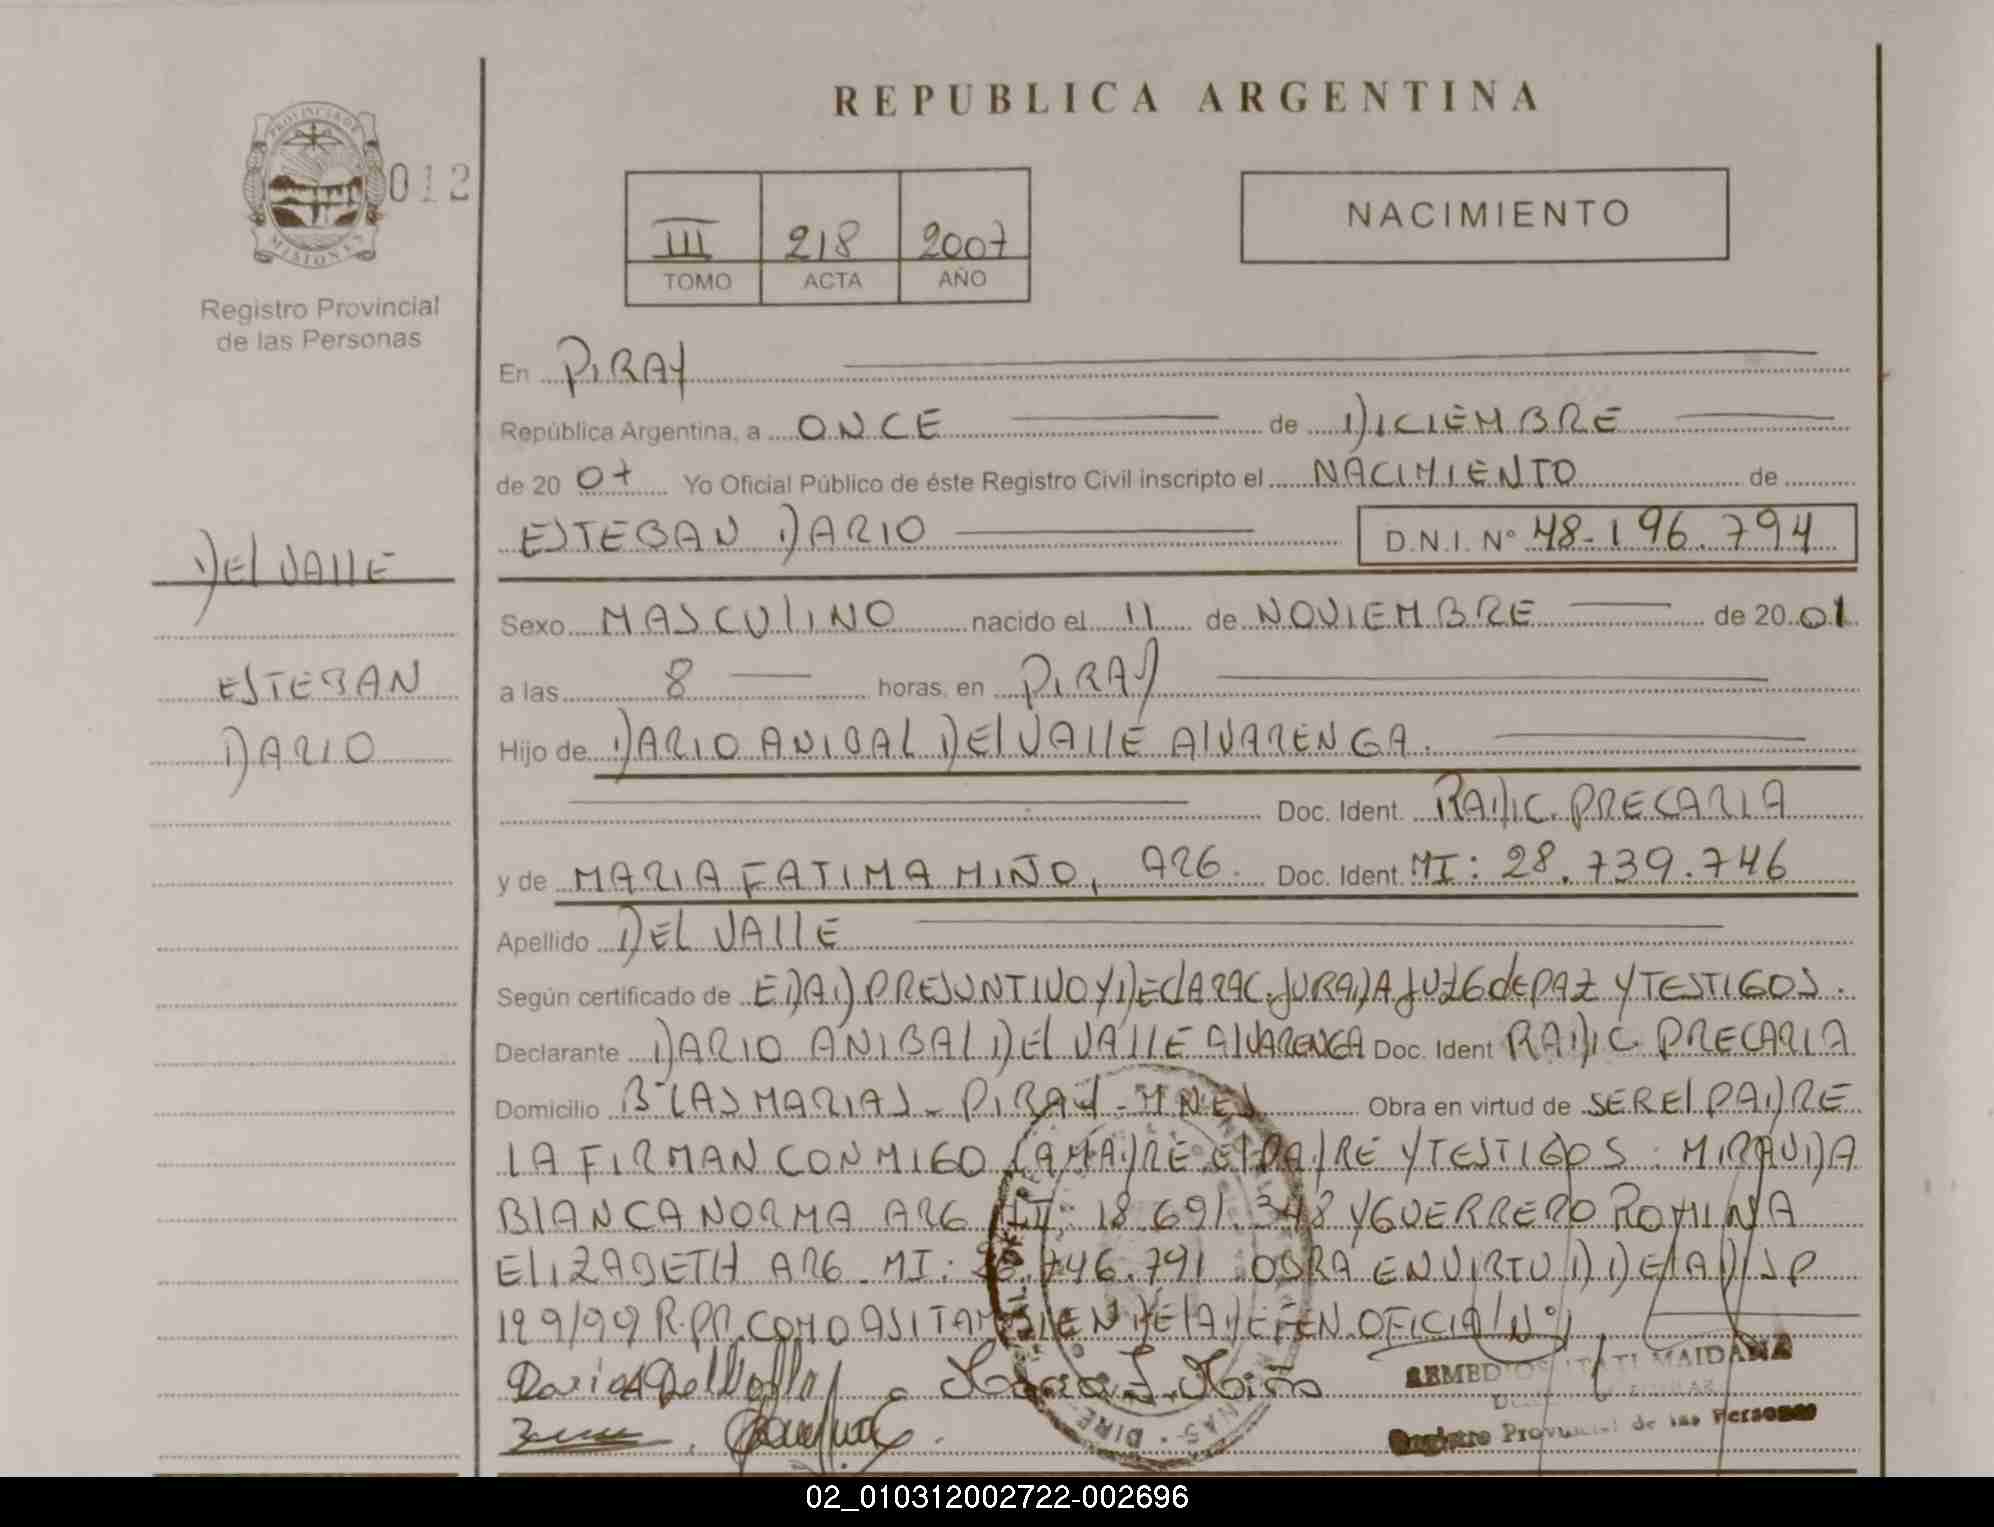 REPUBLICA ARGENTINA
PROVINCIA DE
MISIONES
012
Registro Provincial
de las Personas
III 218 2007
TOMO ACTA AÑO
NACIMIENTO
En PIRAY
República Argentina, a ONCE de DICIEMBRE
de 20 07 Yo Oficial Público de éste Registro Civil inscripto el NACIMIENTO de
ESTEBAN DARIO D.N.I. Nº 48-196.794
DEL VALLE
ESTEBAN
DARIO
Sexo MASCULINO nacido el 11 de NOVIEMBRE de 20 01
a las 8 horas, en PIRAY
Hijo de DARIO ANIBAL DEL VALLE ALVARENGA.
Doc. Ident. RADIC. PRECARIA
y de MARIA FATIMA MIÑO, ARG. Doc. Ident. MI: 28.739.746
Apellido DEL VALLE
Según certificado de EDAD PRESUNTIVO Y DECLARAC. JURADA JUZG de PAZ Y TESTIGOS.
Declarante DARIO ANIBAL DEL VALLE ALVARENGA Doc. Ident RADIC. PRECARIA
Domicilio Bº LAS MARIAS - PIRAY - MNES Obra en virtud de SER EL PADRE
LA FIRMAN CONMIGO LA MADRE EL PADRE Y TESTIGOS: MIRAUDA
BLANCA NORMA ARG MI: 18.691.348 Y GUERRERO ROMINA
ELIZABETH ARG. MI: 746.791 OBRA EN VIRTUD DE LA DISP
199/99 R.PP. COMO ASI TAMBIEN DE LA DEFEN. OFICIAL Nº 1
Dario A Del Valle
Maria F. Miño
REMEDIOS ITATI MAIDANA
Registro Provincial de las Personas
02_010312002722-002696